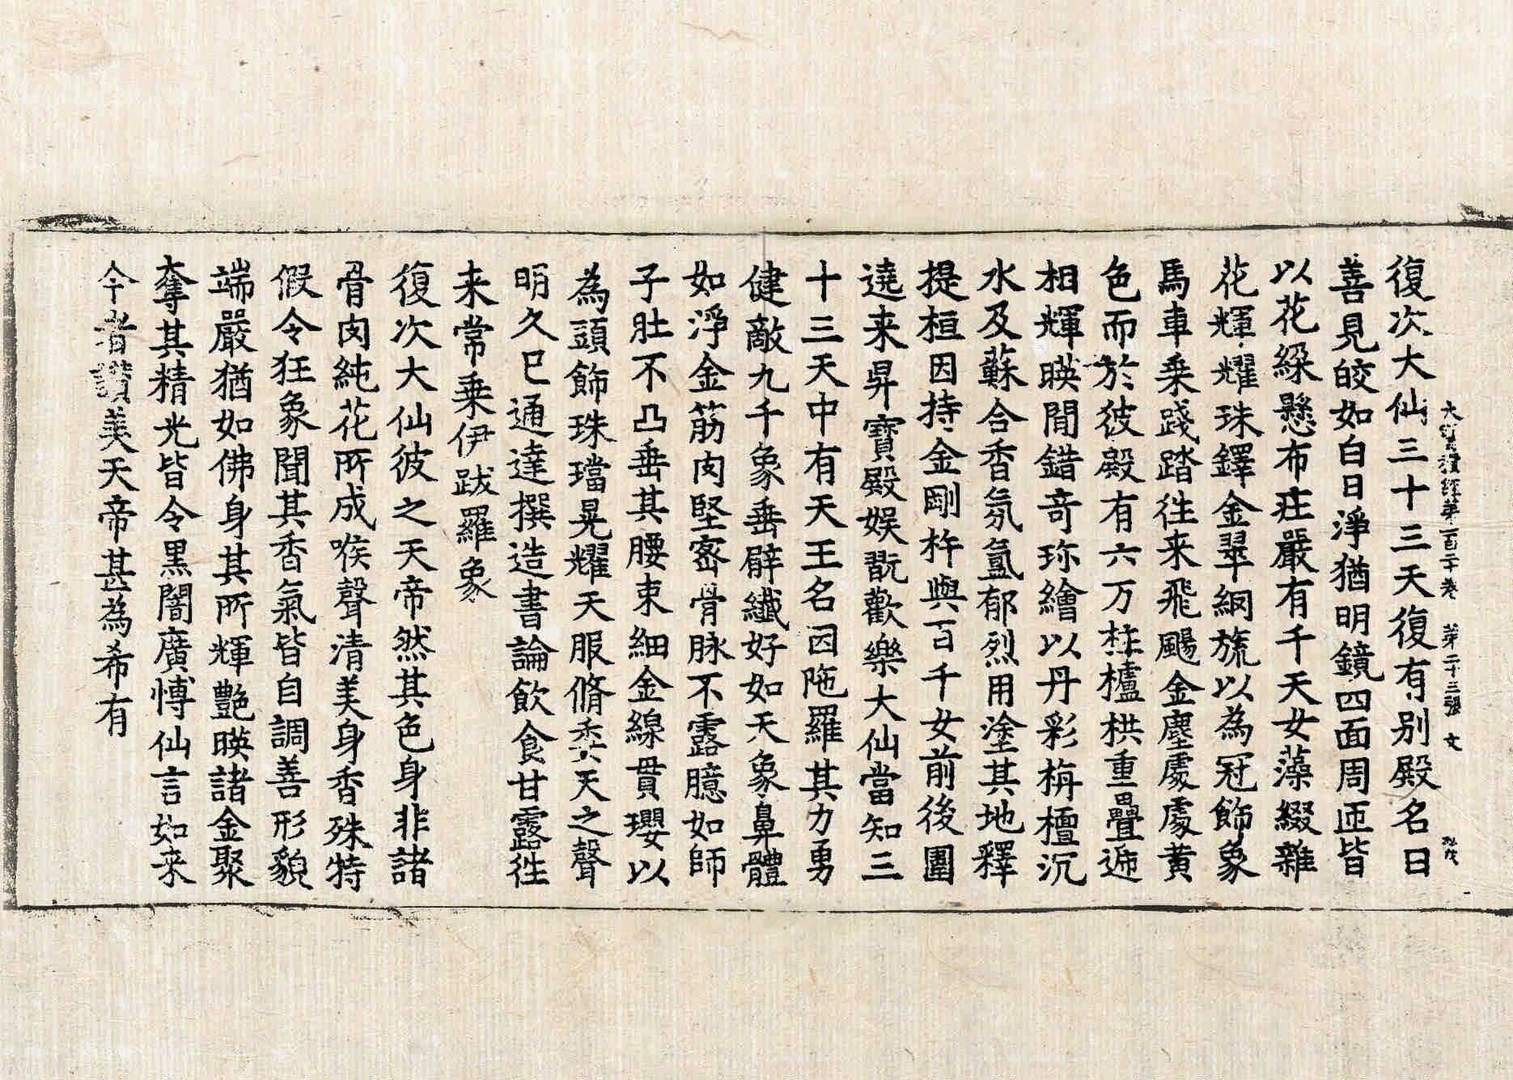 大寶積經第一百二十卷 第二十三張 文
復次大仙三十三天復有別殿名曰
善見皎如白日淨猶明鏡四面周匝皆
以花綵懸布荘嚴有千天女藻綴雜
花輝耀珠鐸金翠網旒以為冠飾象
馬車乗踐踏往来飛颺金塵處處黄
色而於彼殿有六万柱櫨栱重疊遞
相輝暎間錯竒珎繪以丹彩栴檀沉
水及蘇合香氛氳郁烈用塗其地釋
提桓因持金剛杵與百千女前後圍
遶来昇寶殿娯翫歡樂大仙當知三
十三天中有天王名因陁羅其力勇
健敵九千象垂臂纎好如天象鼻體
如淨金筋肉堅宻骨脉不露臆如師
子肚不凸垂其腰束細金線貫瓔以
為頭飾珠璫晃耀天服脩 天之聲
明久已通達撰造書論飲食甘露徃
来常乗伊跋羅象
復次大仙彼之天帝然其色身非諸
骨肉純花所成喉聲清美身香殊特
假令狂象聞其香氣皆自調善形貌
端嚴猶如佛身其所輝艶暎諸金聚
奪其精光皆令黒闇廣愽仙言如来
今者讃美天帝甚為希有